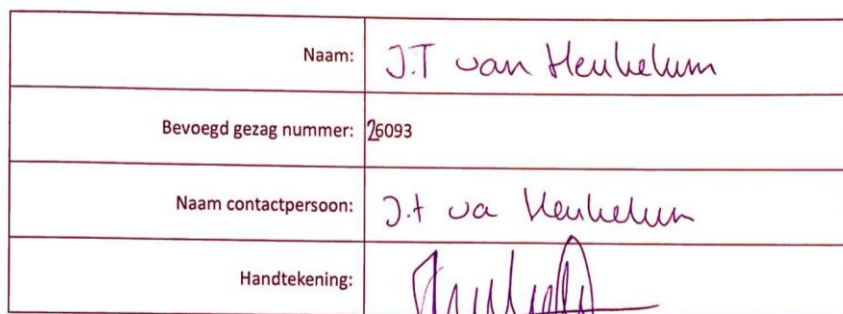 Naam: J.T van Heukelum
Bevoegd gezag nummer: 26093
Naam contactpersoon: J.t va Heukelum
Handtekening: